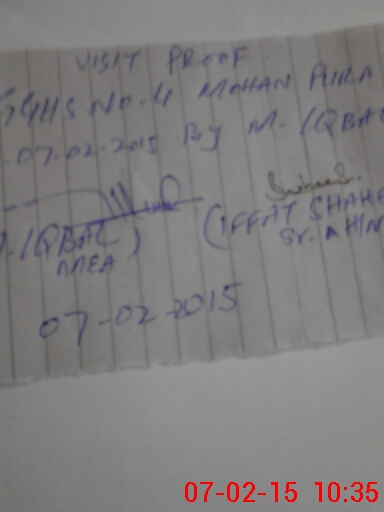 VISIT PROOF
GGHS NO-4 MOHAN PURA
07-02-2015 By M. IQBAL
IQBAL) (IFFAT SHAHE
MEA Sr.
07-02-2015
07-02-15 10:35